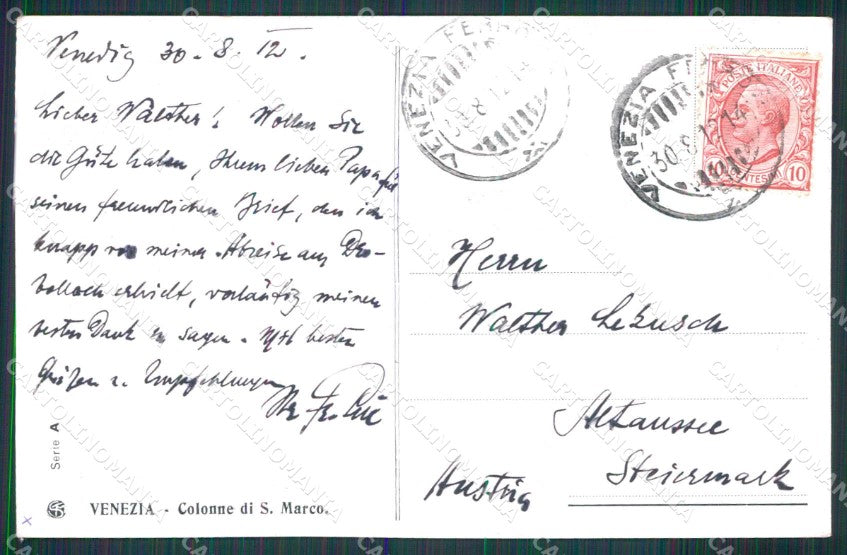 Venedig 30.8.12.
Lieber Walther! Wollen Sie
die Güte haben, Ihrem lieben Papa für
seinen freundlichen Brief, den ich
knapp vor meiner Abreise aus
erhielt, vorläufig meinen
besten Dank zu sagen. Mit besten
Grüßen u. Empfehlungen
Serie A
VENEZIA - Colonne di S. Marco.
VENEZIA
30.8.12.14
VENEZIA
30.8.12.14
POSTE ITALIANE
10 CENTESIMI 10
Herrn
Walther
Altaussee
Steiermark
Austria
CARTOLINOMANIA